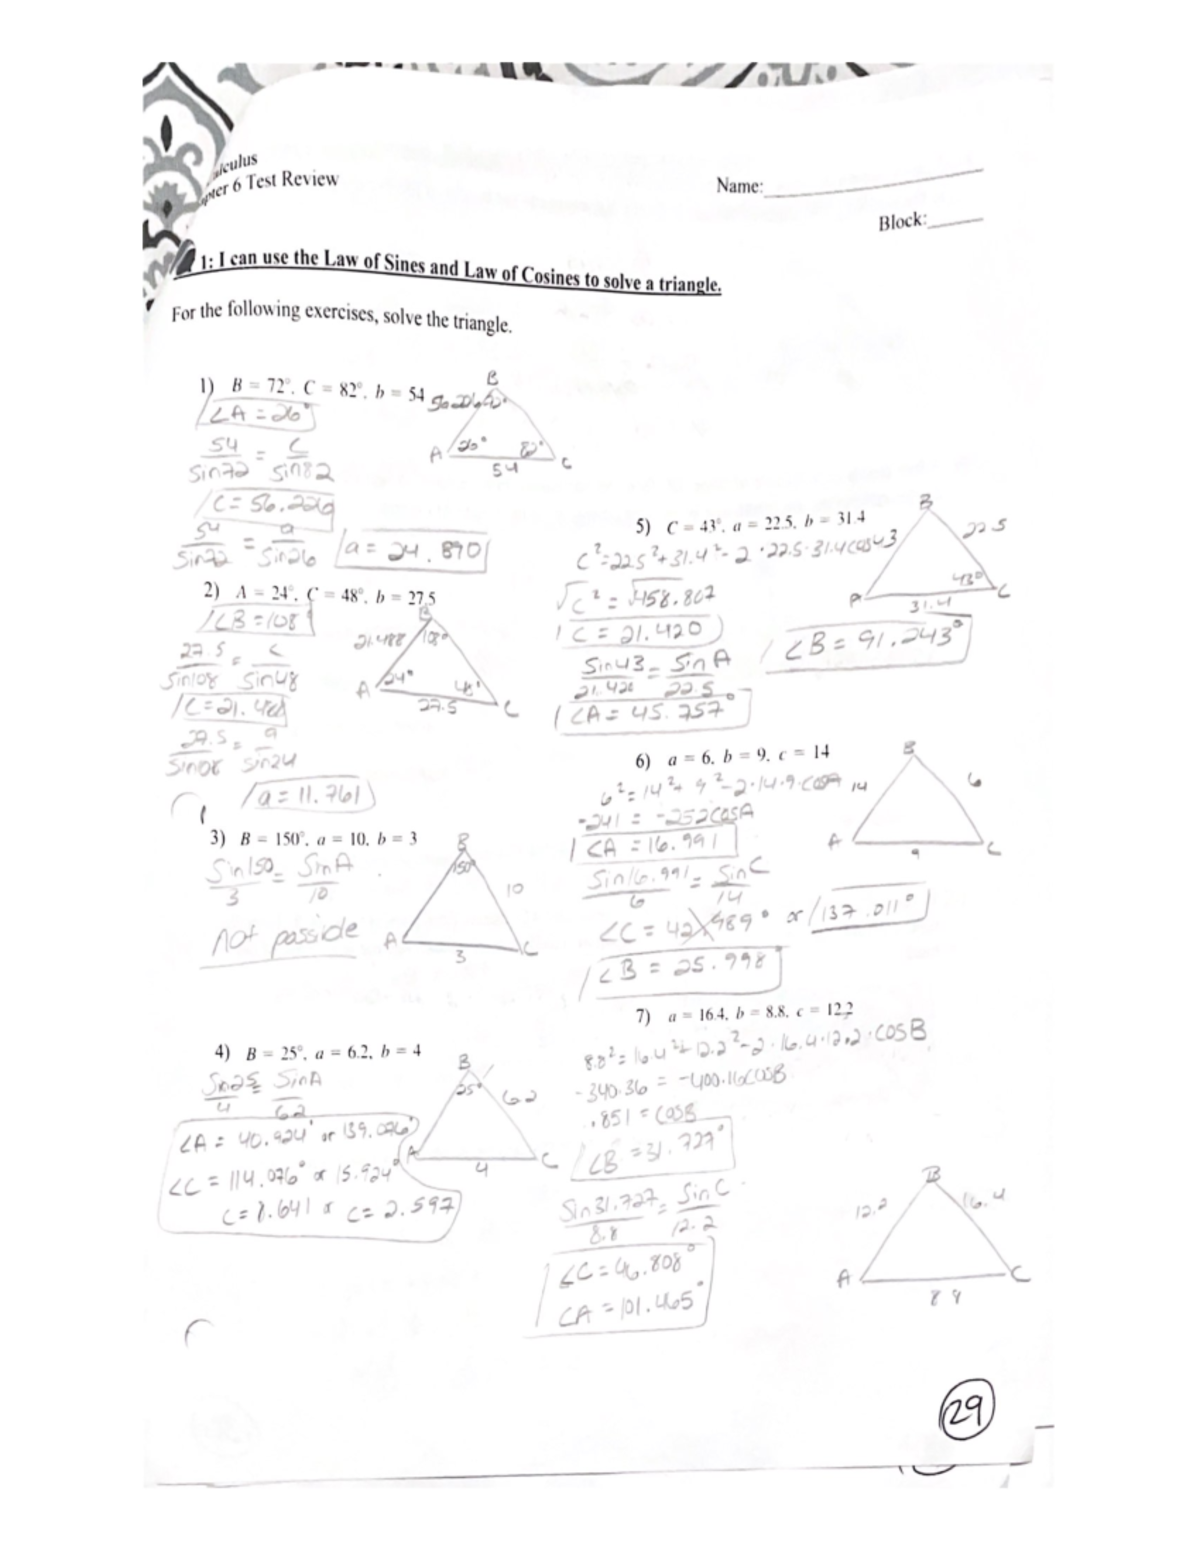 lculus
pter 6 Test Review
Name:
Block:
1: I can use the Law of Sines and Law of Cosines to solve a triangle.
For the following exercises, solve the triangle.
1) B = 72°, C = 82°, b = 54
∠A = 26°
54/sin72 = c/sin82
C = 56.226
54/sin72 = a/sin26
a = 24.890
B
A 26° 82° C
54
2) A = 24°, C = 48°, b = 27.5
∠B = 108°
27.5/sin108 = c/sin48
27.5/sin108 = a/sin24
a = 11.761
B
21.488 108°
A 24° 48° C
27.5
3) B = 150°, a = 10, b = 3
Sin150/3 = SinA/10
not possible
B
150°
10
A C
3
4) B = 25°, a = 6.2, b = 4
Sin25/4 = SinA/6.2
∠A = 40.924° or 139.076°
∠C = 114.076° or 15.924°
C = 8.641 or C = 2.597
B
25° 6.2
A C
4
5) C = 43°, a = 22.5, b = 31.4
C² = 22.5² + 31.4² - 2 · 22.5 · 31.4cos43
√C² = √458.807
C = 21.420
Sin43/21.420 = SinA/22.5
∠A = 45.757°
∠B = 91.243°
B
22.5
A 43° C
31.4
6) a = 6, b = 9, c = 14
6² = 14² + 9² - 2·14·9·cosA
-241 = -252cosA
∠A = 16.991
Sin16.991/6 = SinC/14
∠C = 42.989° or 137.011°
∠B = 25.998°
B
14 6
A C
9
7) a = 16.4, b = 8.8, c = 12.2
8.8² = 16.4² + 12.2² - 2·16.4·12.2·cosB
-340.36 = -400.16cosB
.851 = cosB
∠B = 31.727°
Sin31.727/8.8 = SinC/12.2
∠C = 46.808°
∠A = 101.465°
B
12.2 16.4
A C
29